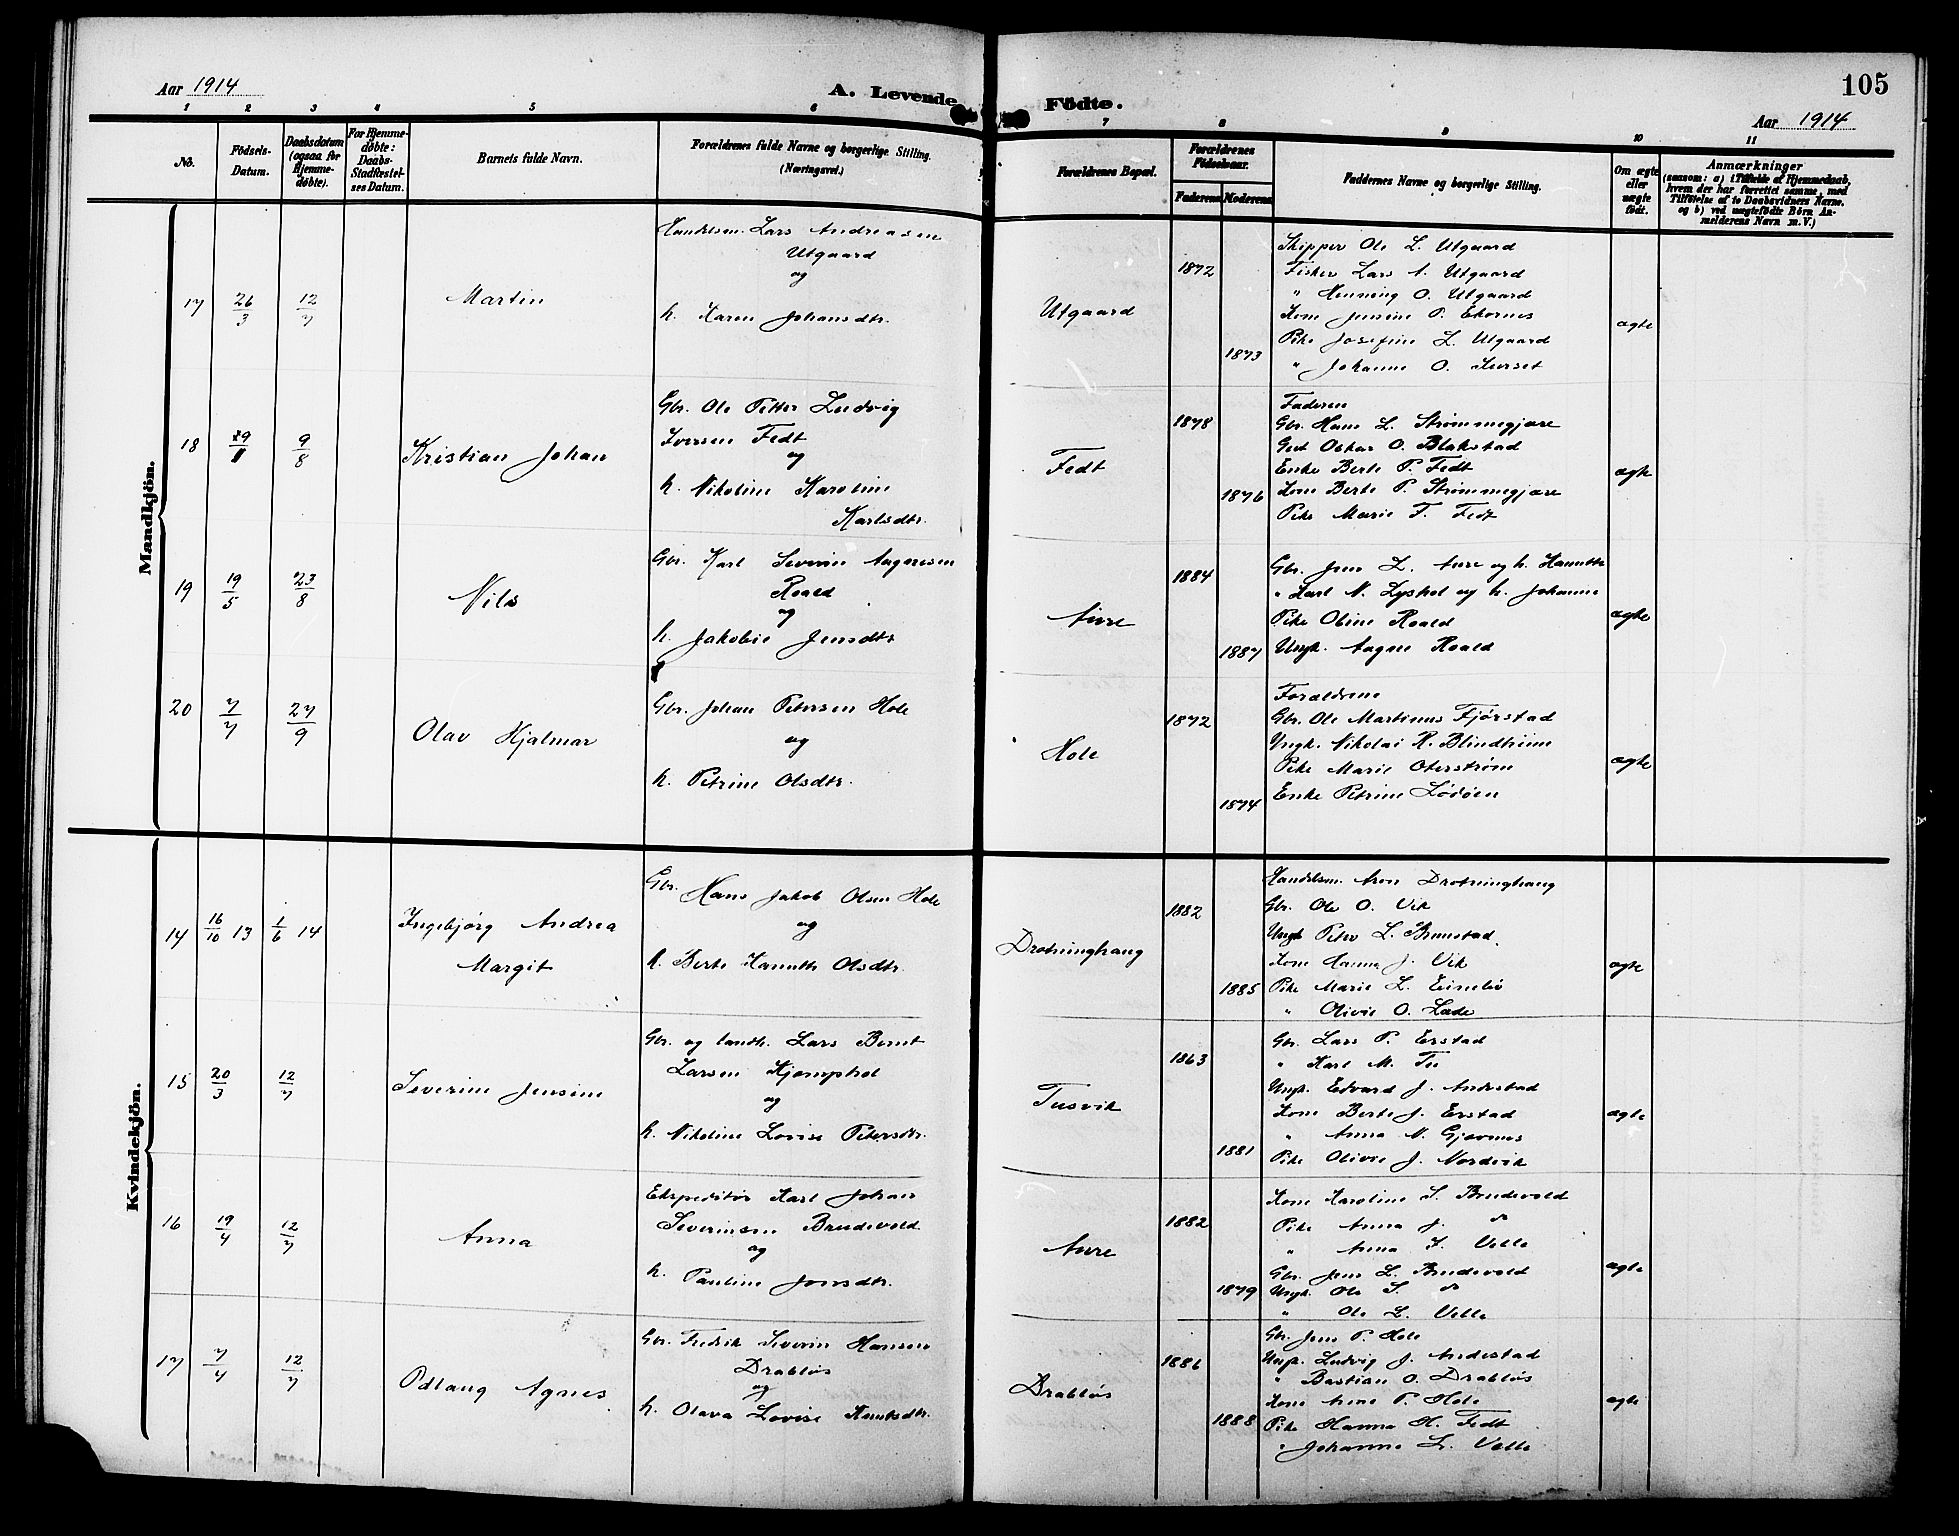 Aar 1914
A. Levende Födte.
105
Aar 1914
1 2 3 4 5 6 7 8 9 10 11
No.
Födsels-
Datum.
Daabsdatum
(ogsaa for
Hjemme-
døbte).
For Hjemme-
døbte:
Daabs-
Stadfæstel-
ses Datum.
Barnets fulde Navn.
Forældrenes fulde Navne og borgerlige Stilling.
(Næringsvei.)
Forældrenes Bopæl.
Forældrenes
Födselsaar.
Faderens
Moderens
Faddernes Navne og borgerlige Stilling.
Om ægte
eller
uægte
født.
Anmærkninger
(saasom: a) i Tilfælde af Hjemmedaab,
hvem der har forrettet samme, med
Tilföielse af to Daabsvidners Navne,
og b) ved uægtefödte Börn An-
melderens Navn m. V.)
Mandkjön.
17 26/3 12/7 Martin
Handelsm. Lars Andreasen
Utgaard
og
h. Karen Johansdtr.
Utgaard
1872
1873
Skipper Ole L. Utgaard
Fisker Lars A. Utgaard
" Henning O. Utgaard
Kone Jensine P. Ekornes
Pike Josefine L. Utgaard
" Johanne O. Kurset
ægte
18 29/1 9/8 Kristian Johan
Gbr. Ole Petter Ludvig
Iversen Fedt
og
h. Nikoline Karoline
Karlsdtr.
Fedt
1878
1876
Faderen
Gbr. Hans L. Strømmegjære
Gut Oskar O. Blakstad
Enke Berte P. Fedt
Kone Berte P. Strømmegjære
Pike Marie F. Fedt
ægte
19 19/5 23/8 Nils
Gbr. Karl Severin Aagesen
Roald
og
h. Jakobie Jensdtr
Aure
1884
1887
Gbr. Jens L. Aure og h. Hanutte
" Karl N. Lyshol og h. Johanne
Pike Oline Roald
Ungk. Aagne Roald
ægte
20 7/7 27/9 Olav Hjalmar
Gbr. Johan Petersen Hole
og
h. Petrine Olsdtr.
Hole
1872
1874
Forældrene
Gbr. Ole Martinus Fjørstad
Ungk. Nikolai R. Blindheim
Pike Marie Oterstrøm
Enke Petrine Lødøen
ægte
Kvindekjön.
14 16/10 13 1/6 14 Ingebjørg Andrea
Margit
Gbr. Hans Jakob Olsen Hole
og
h. Berte Hanutte Olsdtr.
Drotninghaug
1882
1885
Handelsm. Aron Drotninghaug
Gbr. Ole O. Vik
Ungk Peter L. Brunstad
Kone Hanna J. Vik
Pike Marie L. Eimebø
" Olivie O. Lade
ægte
15 20/3 12/7 Severine Jensine
Gbr. og landh. Lars Bernt
Larsen Hjomshol
og
h. Nikoline Lovise Petersdtr.
Tusvik
1863
1881
Gbr. Lars P. Erstad
" Karl M. Tu
Ungk. Edvard J. Andestad
Kone Berte J. Erstad
" Anna M. Gjævnes
Pike Olivie J. Nordvik
ægte
16 19/4 12/7 Anna
Ekspeditør Karl Johan
Severinsen Brudevold
og
h. Pauline Jonsdtr.
Aure
1882
1879
Kone Karoline S. Brudevold
Pike Anna J. do
" Anna S. Velle
Gbr. Jens L. Brudevold
Ungk. Ole S. do
" Ole L. Velle
ægte
17 7/4 12/7 Odlaug Agnes
Gbr. Fredrik Severin Hansen
Drabløs
og
h. Olava Lovise Knutsdtr.
Drabløs
1886
1888
Gbr. Jens P. Hole
Ungk. Ludvig J. Andestad
" Bastian O. Drabløs
Kone Anne P. Hole
Pike Hanna H. Fedt
" Johanne L. Velle
ægte